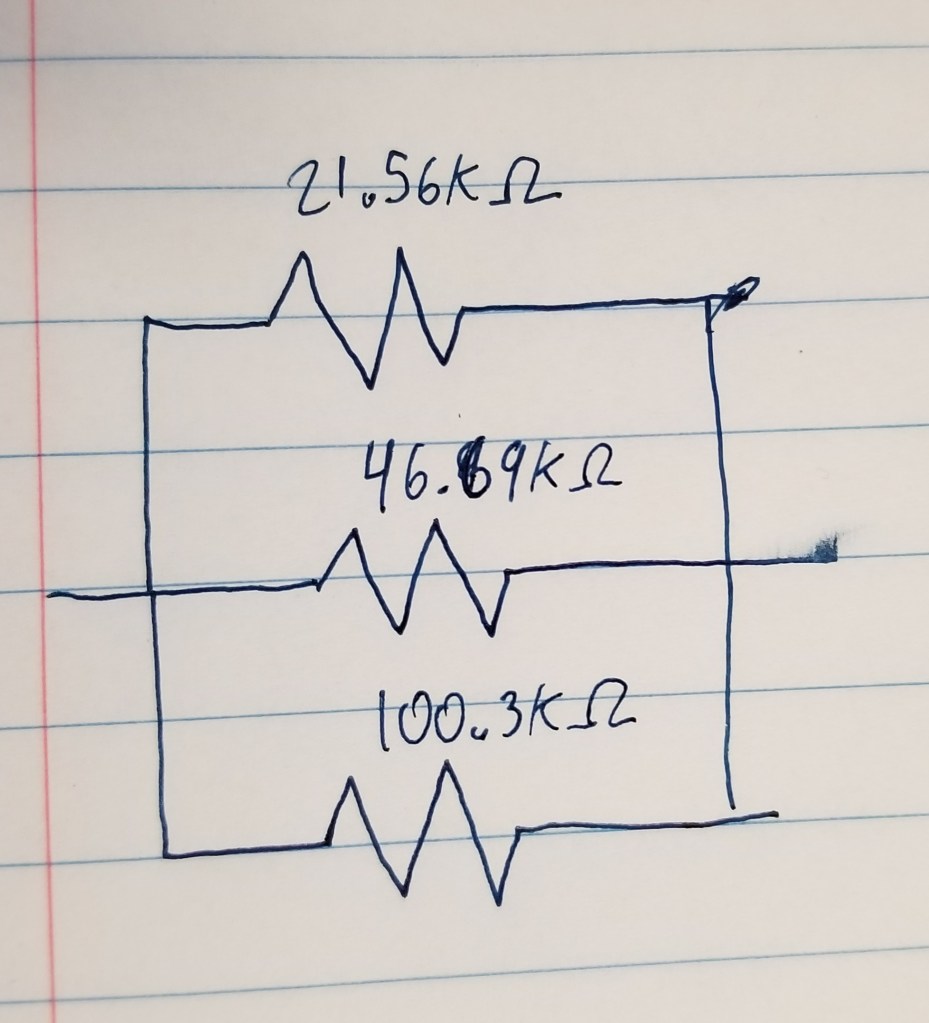 21.56kΩ
46.69kΩ
100.3kΩ